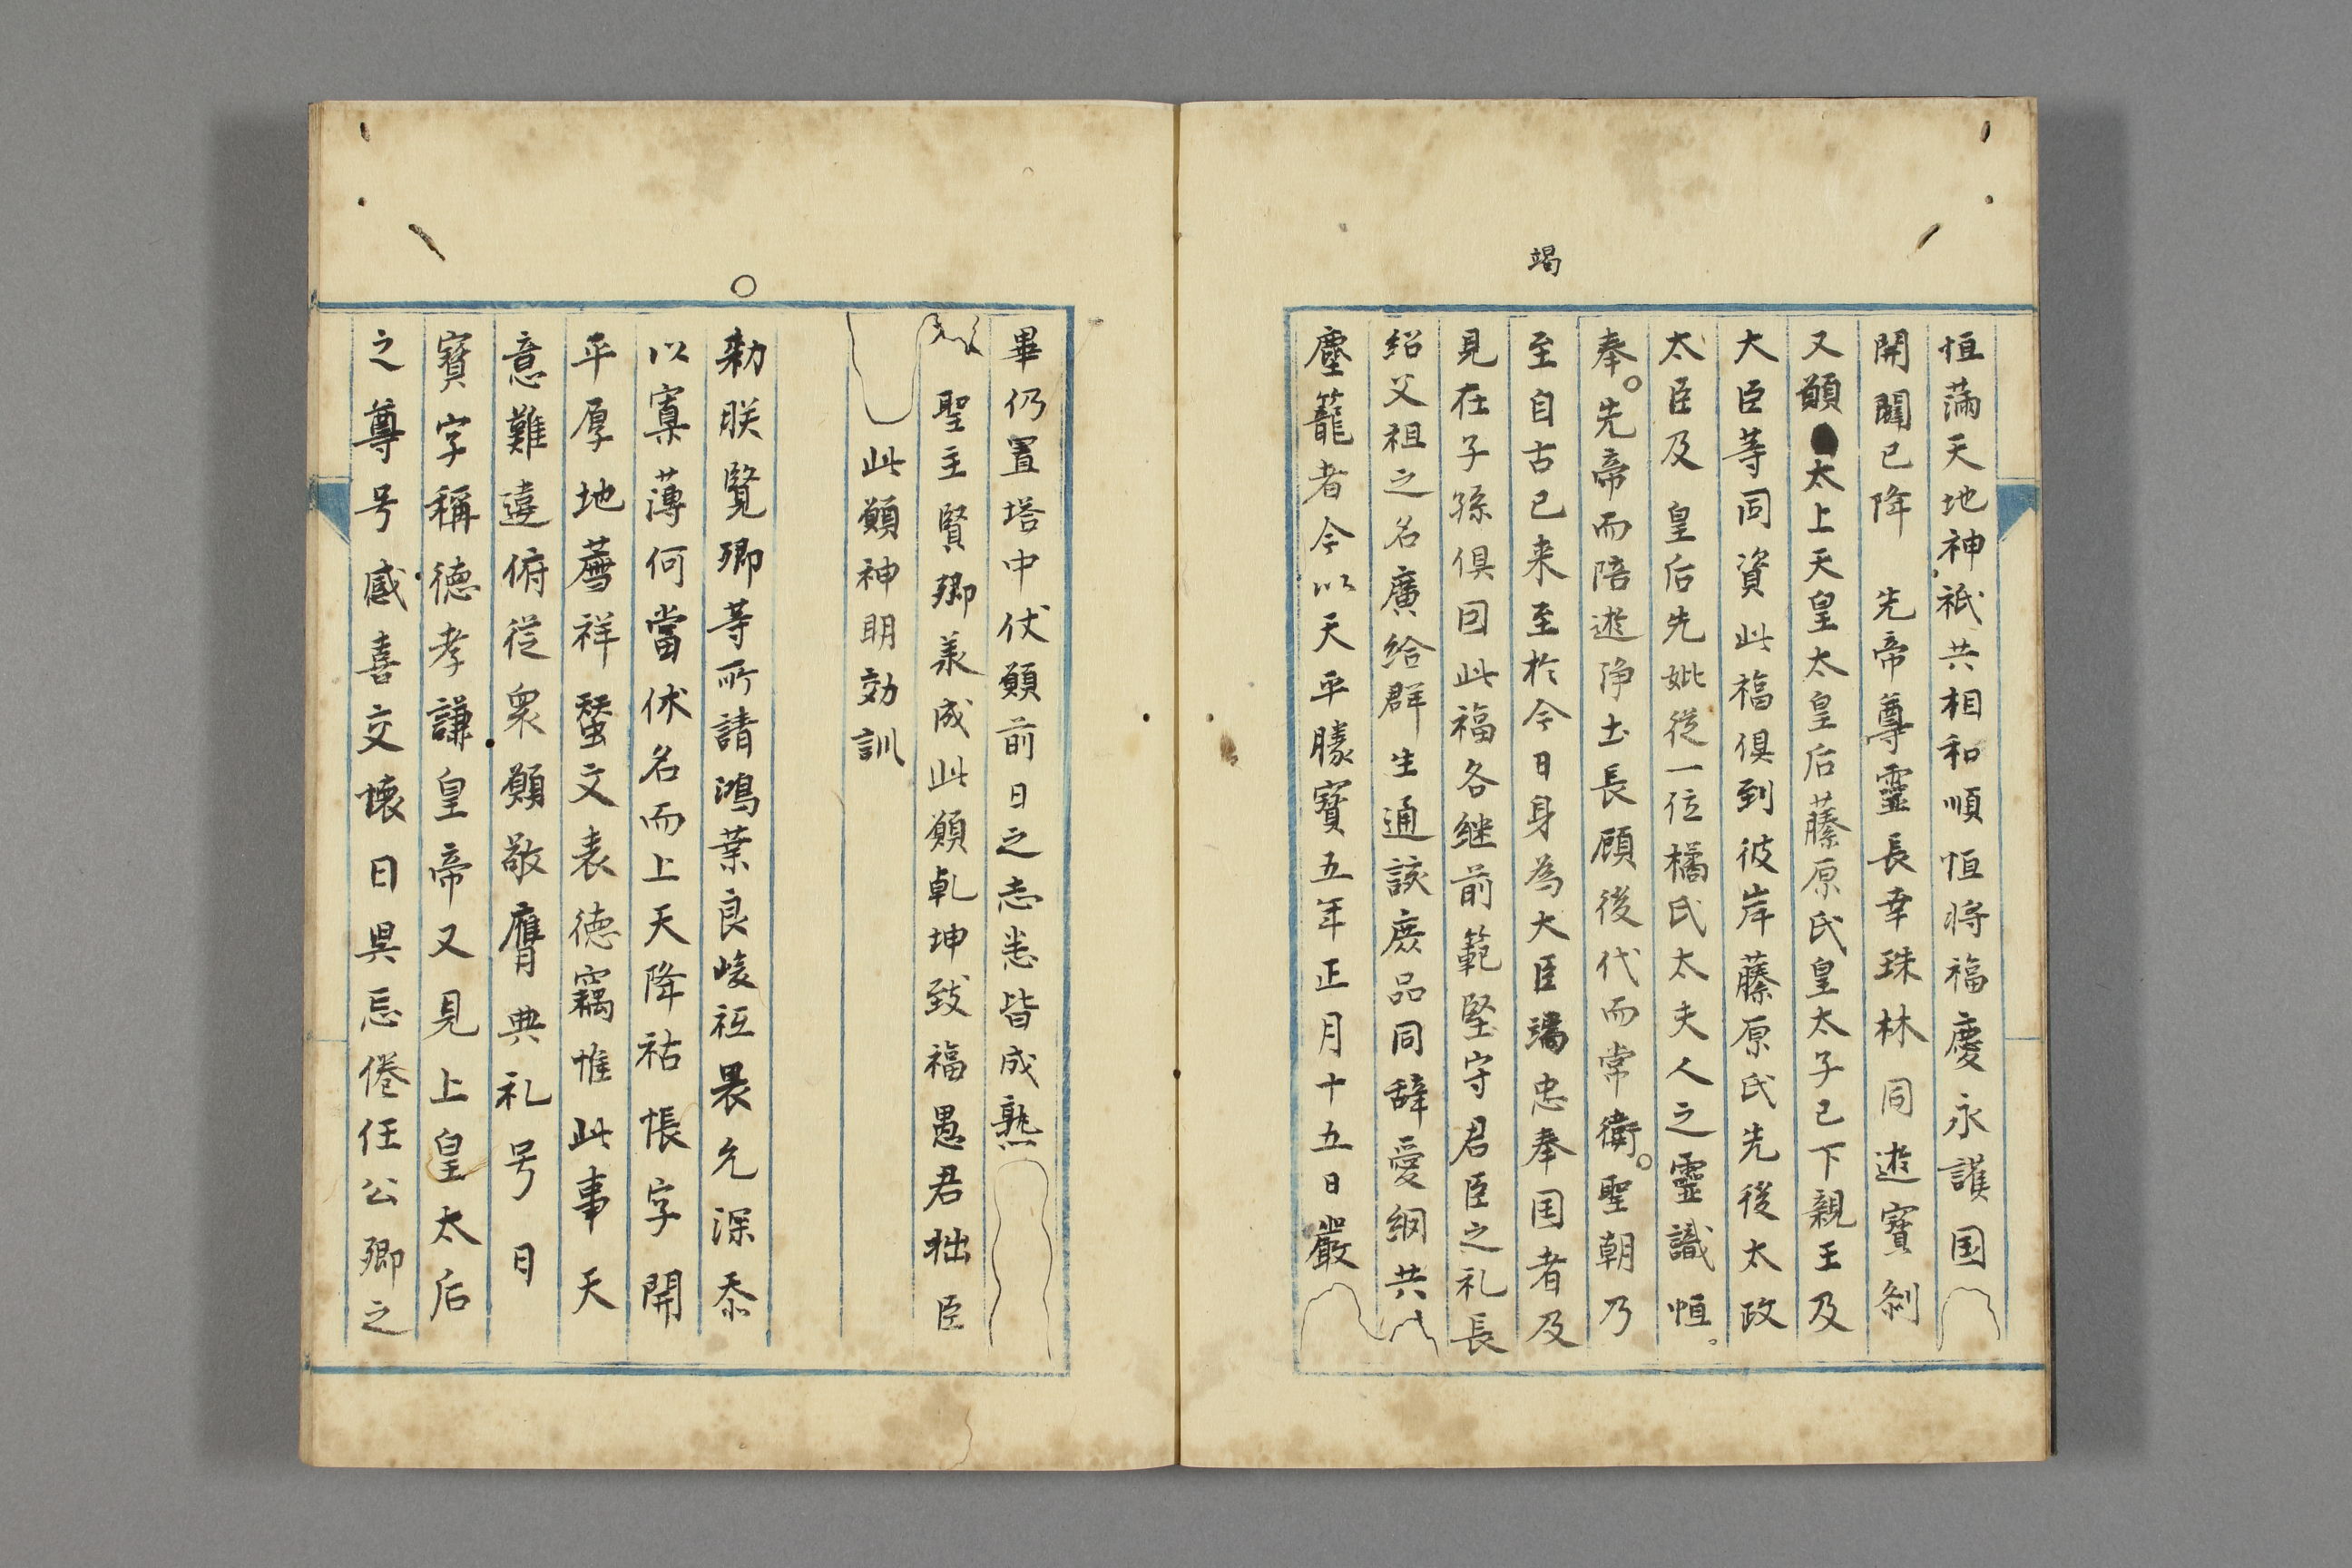 竭
恒蒲天地神祇共相和順恒将福慶永護国
開闢已降先帝尊霊長幸珠林同遊寳刹
又願太上天皇太皇后藤原氏皇太子已下親王及
大臣等同資此福倶到彼岸藤原氏先後太政
太臣及皇后先妣從一位橘氏太夫人之霊識恒
奉先帝而陪遊浄土長顧後代而常衛聖朝乃
至自古已来至於今日身為大臣竭忠奉国者及
見在子孫倶因此福各継前範堅守君臣之礼長
紹父祖之名廣給群生通該庶品同辞愛網共
塵籠者今以天平勝寳五年正月十五日嚴
畢仍置塔中伏願前日之志悉皆成熟
聖主賢卿美成此願乾坤致福愚君拙臣
此願神明効訓
○
勅朕覧卿等所請鴻業良峻祗畏允深忝
以寡薄何當休名而上天降祐帳字開
平厚地薦祥蚕文表徳竊惟此事天
意難違俯從衆願敬膺典礼号曰
寳字稱徳孝謙皇帝又見上皇太后
之尊号感喜交懐日昃忘倦任公卿之